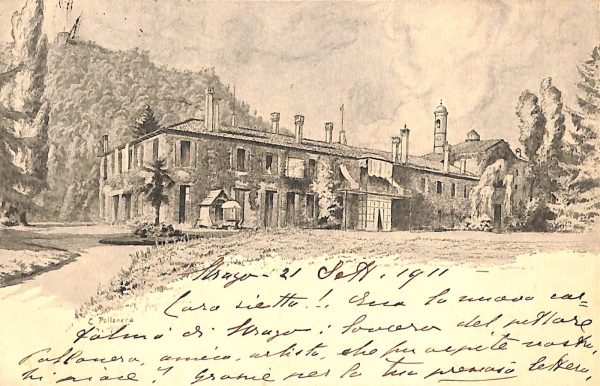 C. Pollonera
Urago - 21 Sett. 1911
Cara zietta! Ecco la nuova car-
tolina di Urago: lavoro del pittore
Pollonera, amico, artista, che fu ospite nostro.
Ti piace? Grazie per la tua lettera,